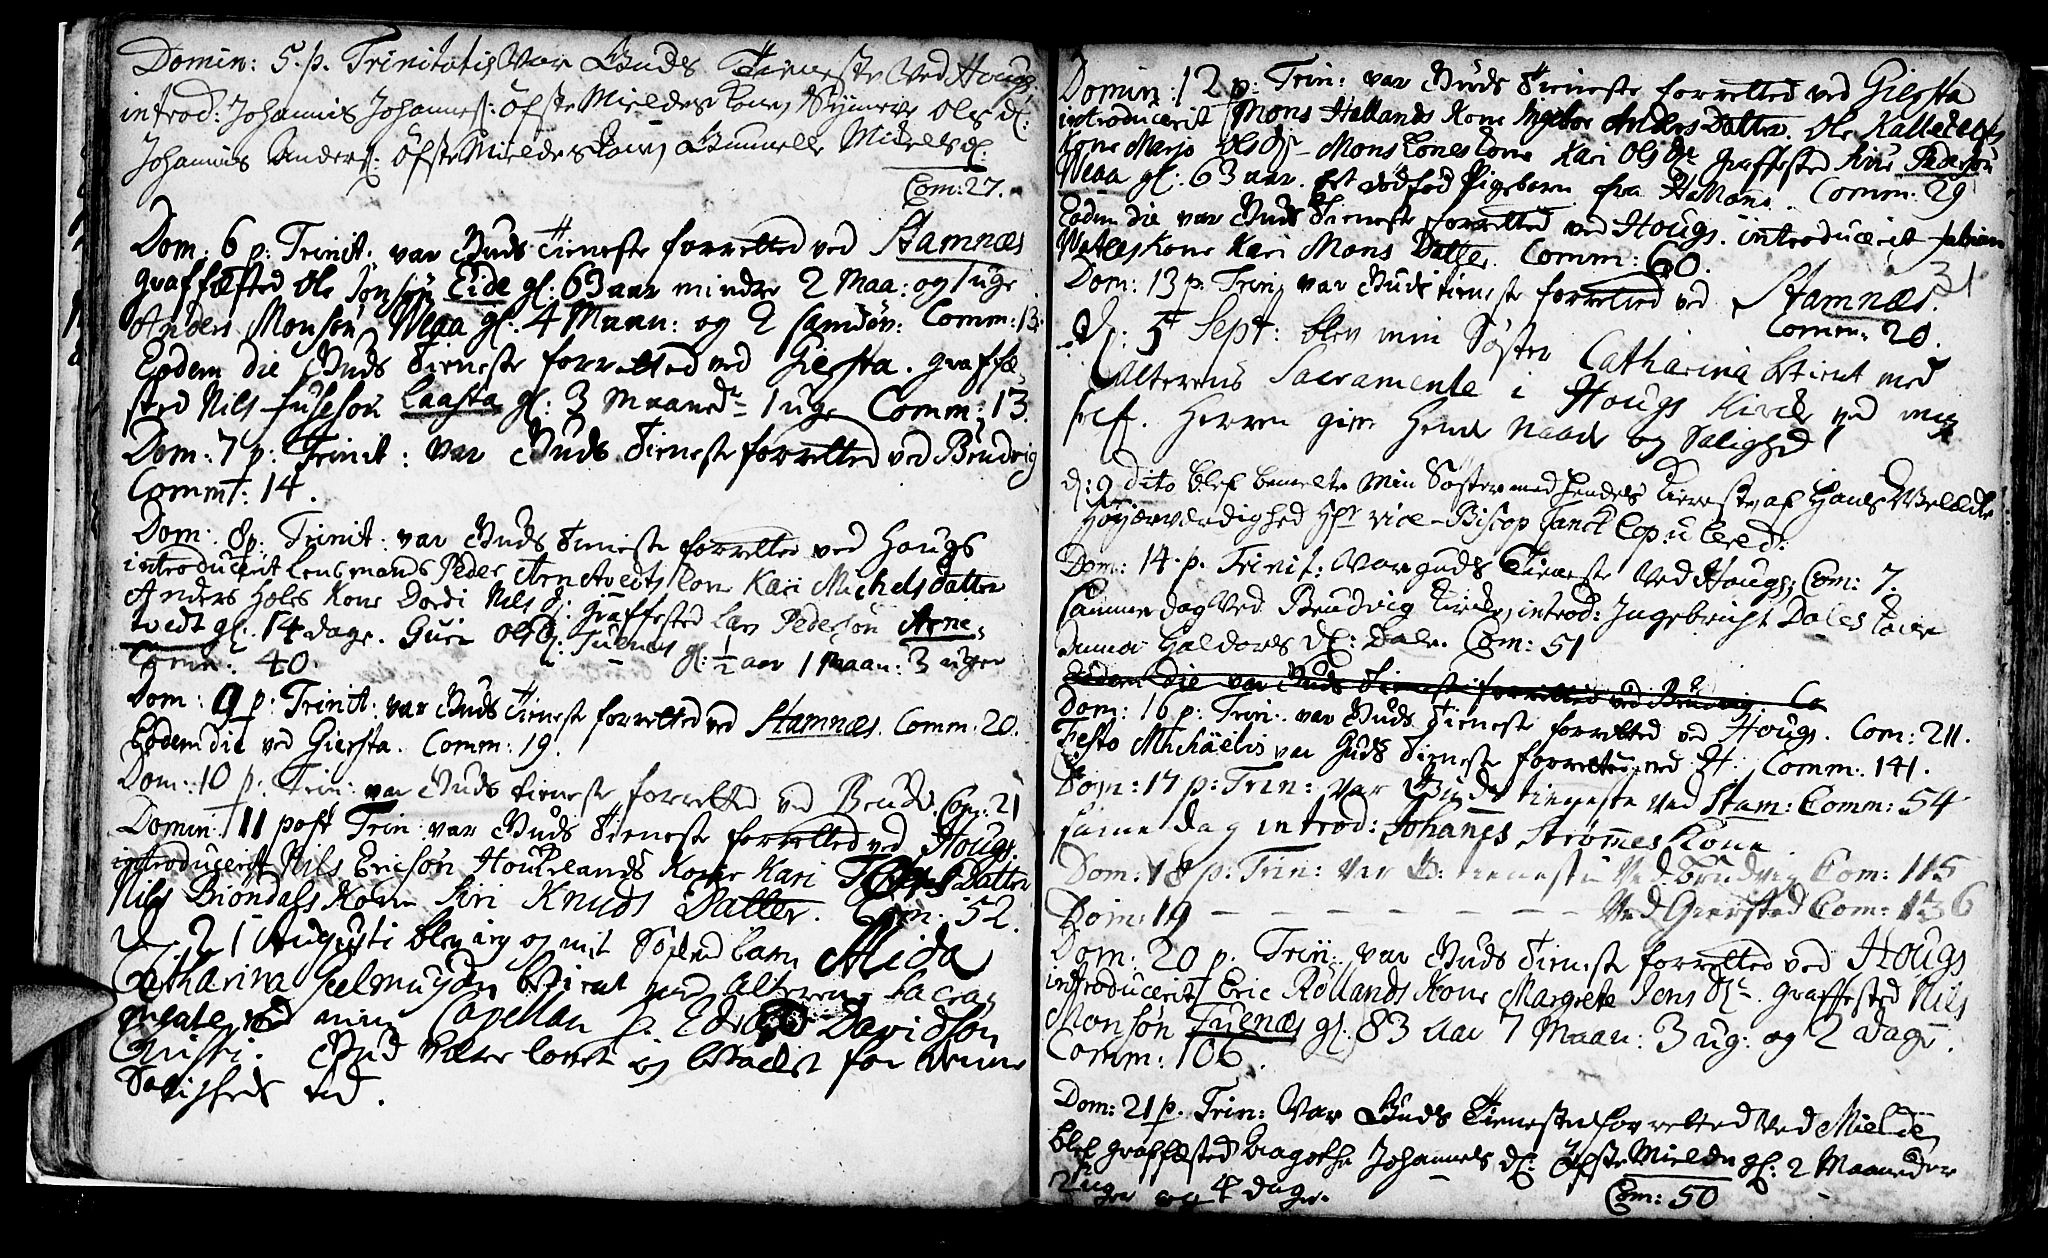 Domin: 5. p. Trinitatis Var Guds Tieneste Ved Houg:
introd: Johannis Johanness: Øfste Mieldes Kone, Synneve Ols d:
Johannes Anders: Øfste Mieldes Kone, Gunnelle Mickels d:
Com: 27.
Dom: 6 p: Trinit: var Guds Tieneste forretted ved Stamnæs
graffæsted Ole Jonsøn Eide gl: 63 aar mindre 2 Maa: og 1 uge
Anders Monsøn Weaa gl: 4 Maan: og 2 Comm: 13.
Eodem die Guds Tieneste forretted ved Giersta. graffæ-
sted Nils Laasta gl: 3 Maaned 1 uge Comm: 13.
Dom: 7 p: Trinit: var Guds Tieneste forretted ved Brudvig
Comm: 14.
Dom: 8 p: Trinit: var Guds Tieneste forretted ved Hougs
introducerit Lensmands Peder Arnetvedts Kone Kari Michels datter
Anders Holes Kone Dordi Nils d: graffested Lars Pedersøn Arne-
tvedt gl: 14 dage. Guri Ols d: Tuenæs gl: ½ aar 1 Maan: 3 uger
Comm: 40.
Dom: 9 p: Trinit: var Guds Tieneste forretted ved Stamnæs. Comm: 20.
Eodem die ved Giersta. Comm: 19.
Dom: 10 p: Trin: var Guds tieneste forretted ved Brudv. Com: 21
Domin: 11 post Trin: var Guds Tieneste forretted ved Hougs.
introducerit Nils Ericsøn Houklands Kone Kari Datter
Nils Brøndals Kone Siri Knuds Datter. Com: 52.
d. 21 Augusti blev ieg og mit Alida
Catharina Geelmuyden betient med Alterens Sacra-
mente ved min Capellan Hr. Davidsøn
Gud være lovet og for denne
Saligheds
Domin: 12 p: Trin: var Guds Tieneste forretted ved Giersta
introducerit Mons Hallands Kone Ingebor Anders Datter. Ole Kalleklevs
Kone Marjo Ols d: Mons Kone Kari Ols d: graffested Pedersøn
Weaa gl: 63 aar. Et dødfød Pigebarn fra Comm: 29
Eodem die var Guds Tieneste forretted ved Hougs. introducerit Fabian
Kone Kari Mons Datter. Comm: 60.
31
Dom: 13 p. Trin: var Guds tieneste forretted ved Stamnæs.
Comm: 20.
d: 5 Sept: blev min Søster Catharina betient med
Alterens Sacramente i Hougs Kirke ved mig
self. Herren give hende Naade og Salighed!
d: 9 dito blef bemelte Min Søster med hendes Kiereste af Hans Velædle
Høyærværdighed Hr vice-Biscop Tanck Copulered:
Dom: 14. p. Trinit: Var guds Tieneste Ved Hougs; Com: 7.
Samme dag Ved Brudvig Kirke, introd: Ingebricht Dales Kone
Anna Haldors d: Dale. Com: 51
Eodem die var Guds Tieneste forretted ved Brudvig. Co
Dom: 16 p: Trin: var Guds Tieneste forretted ved Hougs. Com: 211.
Festo Michaëlis var Guds Tieneste forretted ved H: Comm: 141.
Dom: 17 p: Trin: var Guds tieneste ved Stam: Comm: 54
samme dag introd: Johanes Strømes Kone.
Dom: 18 p: Trin: var G: tieneste Ved Brudvig Com: 115
Dom: 19 – – – – – – – Ved Giersted Com: 136
Dom: 20 p. Trin: var Guds Tieneste forretted ved Hougs
introducerit Eric Røllands Kone Margrete Jens d: graffested Nils
Monsøn Tuenæs gl: 83 Aar 7 Maan: 3 ug: og 2 dage.
Comm: 106.
Dom: 21 p. Trin: Var Guds Tieneste forretted Ved Mielde,
blef graffæsted Johannes d: Øfste Mielde gl: 2 Maaneder
2 uger og 4 dager.
Com: 50